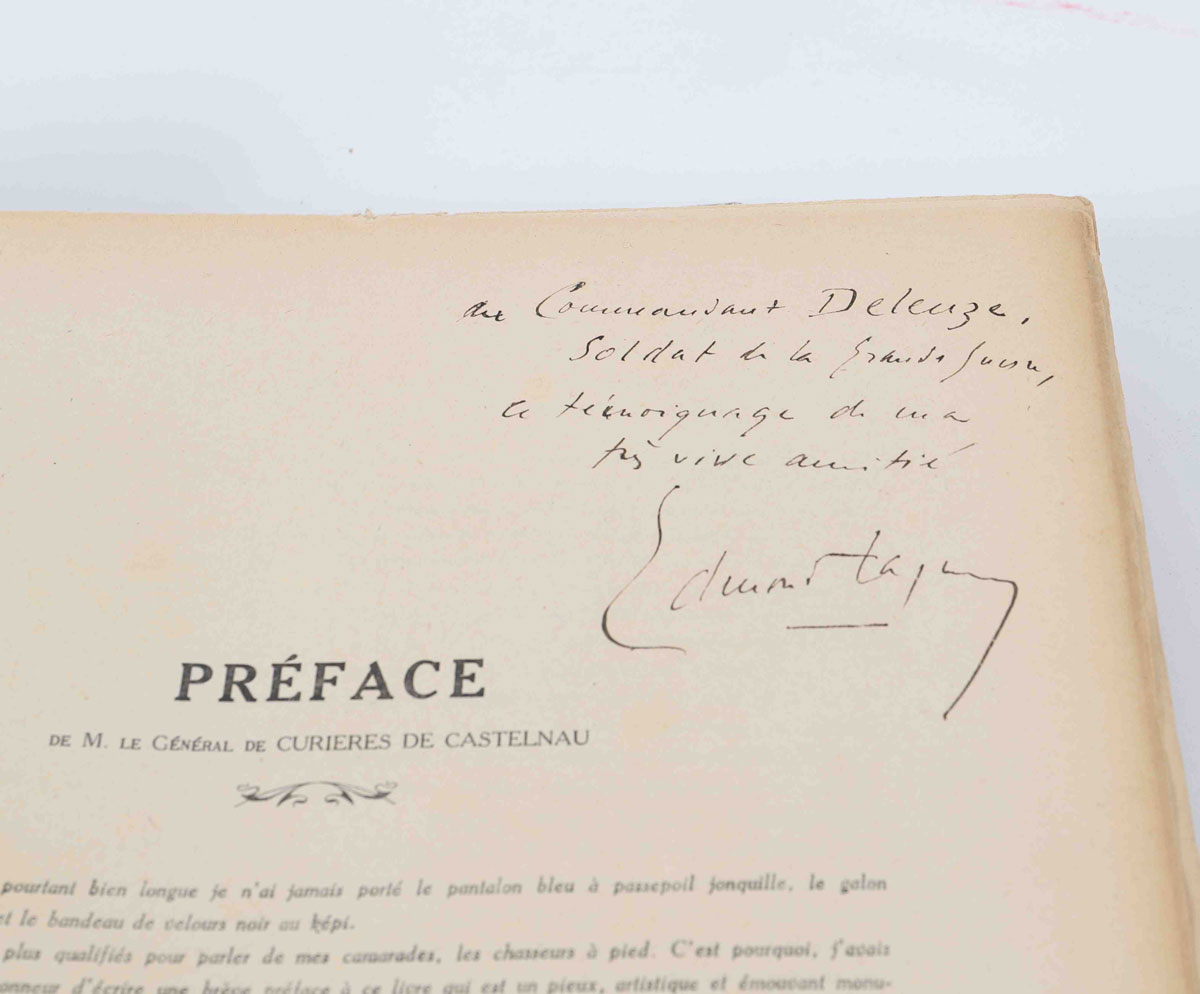 au Commandant Deleuze,
Soldat de la Grande Guerre,
ce témoignage de ma
très vive amitié
Edmond
PRÉFACE
DE M. LE GÉNÉRAL DE CURIERES DE CASTELNAU
pourtant bien longue je n'ai jamais porté le pantalon bleu à passepoil jonquille, le galon
et le bandeau de velours noir au képi.
plus qualifiés pour parler de mes camarades, les chasseurs à pied. C'est pourquoi, j'avais
d'écrire une brève préface à ce livre qui est un pieux, artistique et émouvant monu-